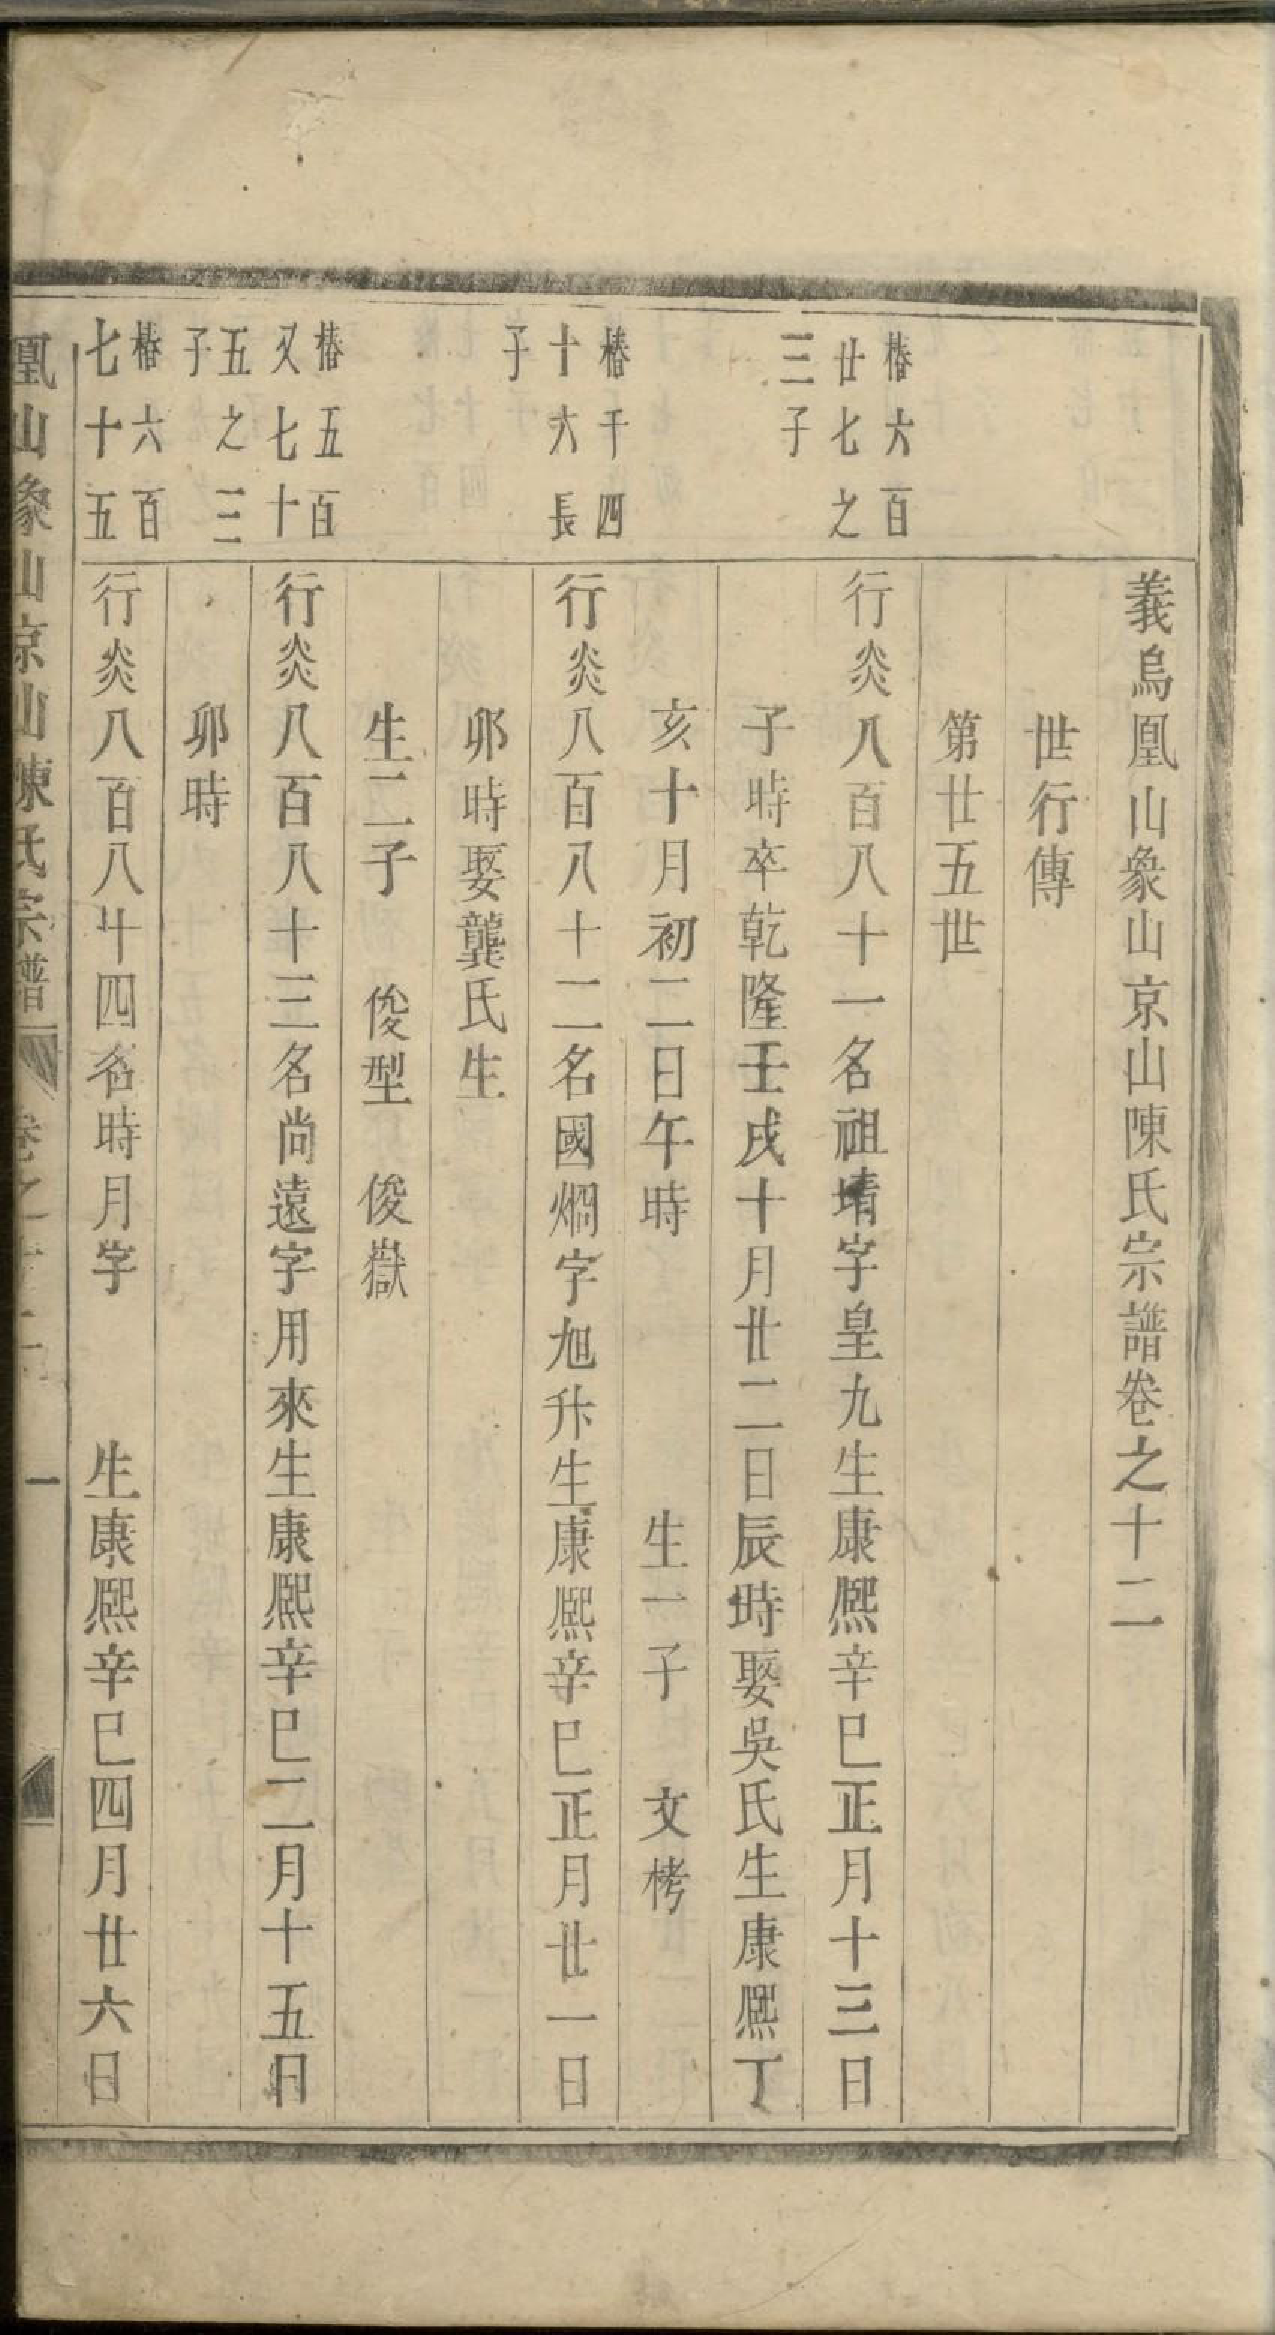 義烏凰山象山京山陳氏宗譜卷之十二
世行傳
第廿五世
椿六百
廿七之
三子
行炎八百八十一名祖堉字皇九生康熙辛巳正月十三日
子時卒乾隆壬戌十月廿二日辰時娶吳氏生康熙丁
亥十月初二日午時 生一子 文栲
椿千四
十六長
子
行炎八百八十二名國烱字旭升生康熙辛巳正月廿一日
卯時娶龔氏生
生二子 俊型 俊嶽
椿五百
又七十
五之三
子
行炎八百八十三名尚遠字用來生康熙辛巳二月十五日
卯時
椿六百
七十五
行炎八百八十四名時月字 生康熙辛巳四月廿六日
凰山象山京山陳氏宗譜 卷之十二 一